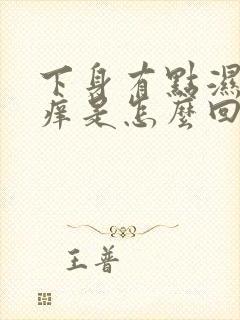 下身有點濕
痒是怎麼回
王普